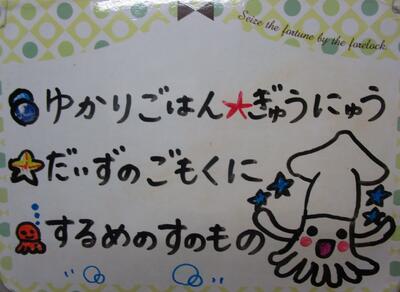 Seize the fortune by the forelock.
ゆかりごはん★ぎゅうにゅう
だいずのごもくに
するめのすのもの